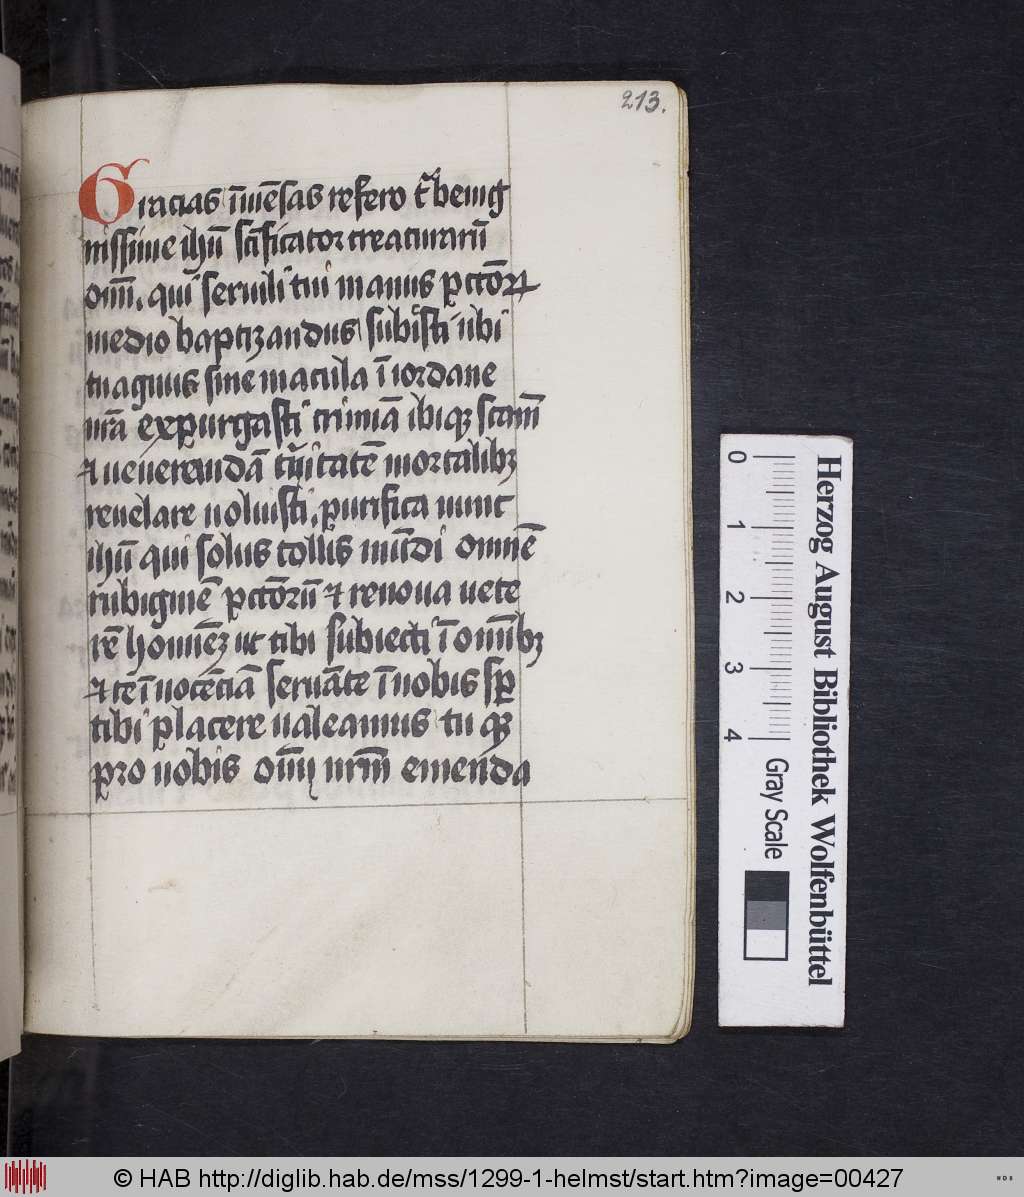 213.
Gracias īmēsas refero t͛ benig
nissime ihū sc̄ificator creaturarū
om̄, qui servili tui manus pcc̄oꝝ
medio baptizandus subisti ubi
tu agnus sine macula ī iordane
nr̄a expurgasti crimīa ibiqꝫ sc̄am̄
⁊ venerandā tⁱnitatē mortalibꝫ
revelare voluisti, purifica nunc
ihū qui solus tollis mūdi omnē
rubiginē pcc̄orū ⁊ renova vete
rē hominēꝫ ut tibi subiecti ī om̄ibꝫ
⁊ cē īnocēciā servātes ī nobis sꝑ
tibi placere valeamus tu qꝫ
pro nobis om̄ nr̄m emenda
0 1 2 3 4
Gray Scale
Herzog August Bibliothek Wolfenbüttel
© HAB http://diglib.hab.de/mss/1299-1-helmst/start.htm?image=00427